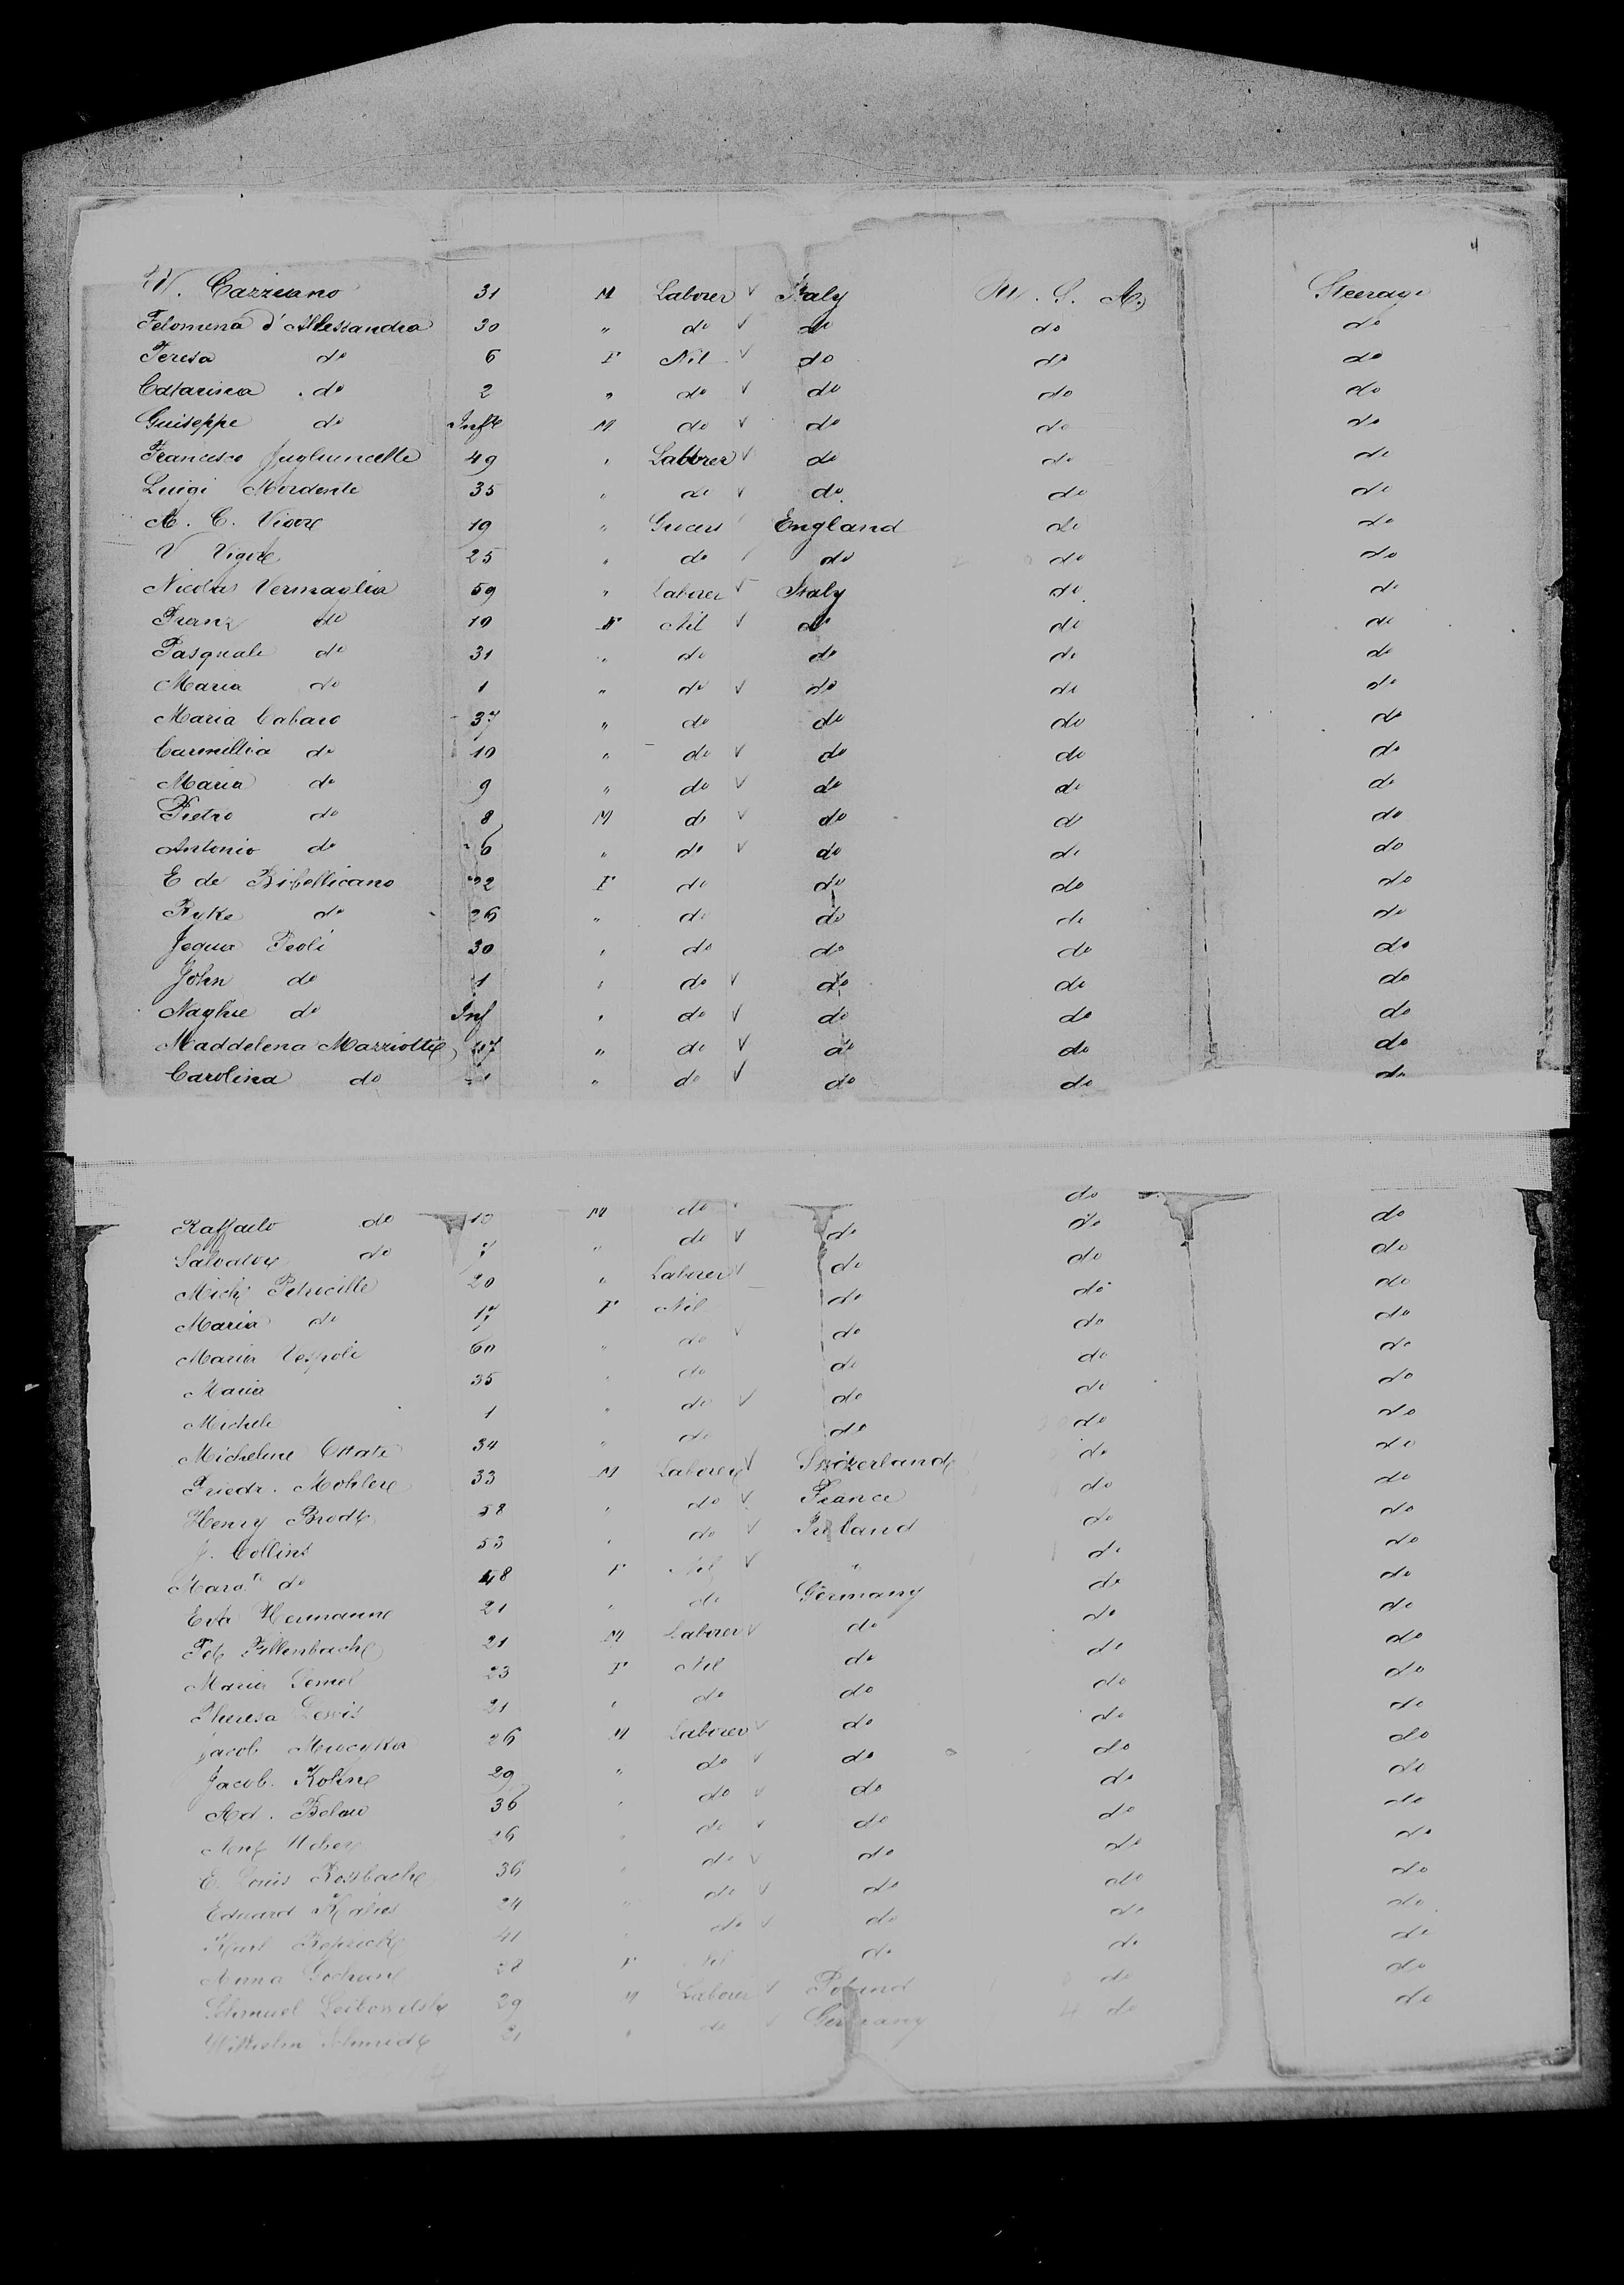 4
W. Cazzeano 31 M Laborer √ Italy U. S. A. Steerage
Felomena d'Allessandra 30 " do √ do do do
Teresa do 6 F Nil √ do do do
Catarina do 2 " do √ do do do
Guiseppe do Inft M do √ do do do
Francesco 49 " Laborer √ do do do
Luigi Mordente 35 " do √ do do do
A. C. Vigore 19 " Grocers England do do
V Vigore 25 " do do do do
Nicolas Vermaglia 59 " Laborer √ Italy do do
Franz do 10 F Nil √ do do do
Pasquale do 31 " do do do do
Maria do 1 " do √ do do do
Maria Cabaro 37 " do do do do
Carmillia do 10 " do √ do do do
Maria do 9 " do √ do do do
Pietro do 8 M do √ do do do
Antonio do 6 " do √ do do do
E de Bibellicano 22 F do do do do
Ryke do 26 " do do do do
Jequa Peoli 30 " do do do do
John do 1 " do √ do do do
Naghie do Inf " do √ do do do
Maddelena Mazziotti 37 " do √ do do do
Carolina do " do √ do do do
Raffaelo do 10 M do do do
Salvatore do 7 " do √ do do do
Michl Petrocille 20 " Laborer √ do do do
Maria do 17 F Nil do do do
Maria Vespoli 60 " do √ do do do
Maria 35 " do do do do
Michele 1 " do √ do do do
Micheline 34 " do do do do
Friedr. Mohler 33 M Laborer √ Switzerland do do
Henry Brodt 58 " do √ France do do
J. Collins 53 " do √ Ireland do do
Margt do 48 F Nil √ " do do
Eva Hermann 21 " do Germany do do
Fillenbach 21 M Laborer √ do do do
Maria Gemel 23 F Nil do do do
Theresa Lewis 21 " do do do do
Jacob 26 M Laborer √ do do do
Jacob. Kohne 29 " do √ do do do
Ad. Below 36 " do √ do do do
Weber 26 " do √ do do do
E. Louis Rossbach 36 " do √ do do do
Eduard 24 " do √ do do do
Karl 41 " do √ do do do
Anna 28 F Nil do do do
Schmuel Leibowitsh 29 M Laborer √ Poland do do
Wilhelm Schmidt 21 " do √ Germany 4 do do